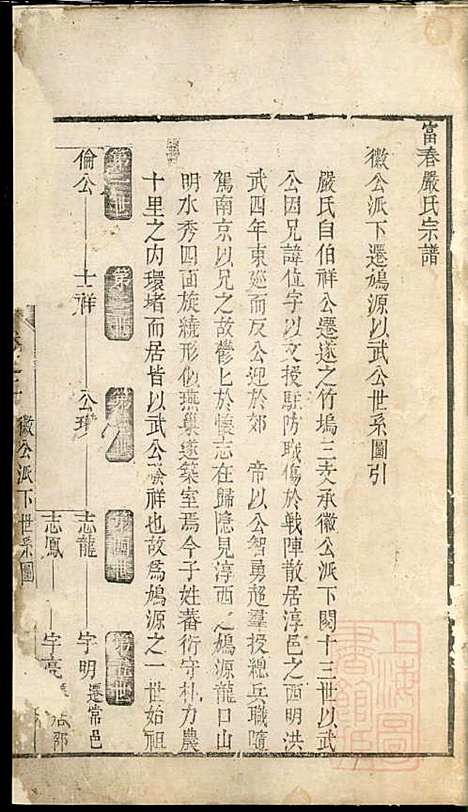 富春嚴氏宗譜
徽公派下遷鳩源以武公世系圖引
嚴氏自伯祥公遷遂之竹塢三支承徽公派下閱十三世以武
公因兄諱值字以文授駐防職傷於戦陣散居淳邑之西明洪
武四年東廵而反公迎於郊 帝以公智勇超羣授總兵職隨
駕南京以兄之故鬱匕於懷志在歸隱見淳西之鳩源龍口山
明水秀四面旋繞形似燕巢遂築室焉今子姓蕃衍守朴力農
十里之内環堵而居皆以武公 祥也故為鳩源之一世始祖
第一世 第二世 第三世 第四世 第五世
倫公 士祥 公 志龍 字明 遷常邑
志鳳 字亮
卷之 徽公派下世系圖
上海